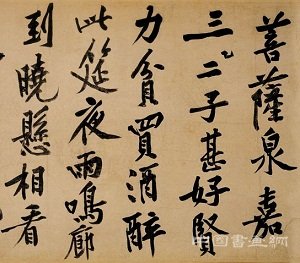 菩薩泉嘉
三二子甚好賢
力貧買酒醉
此筵夜雨鳴廊
到曉懸相看
中国書画網